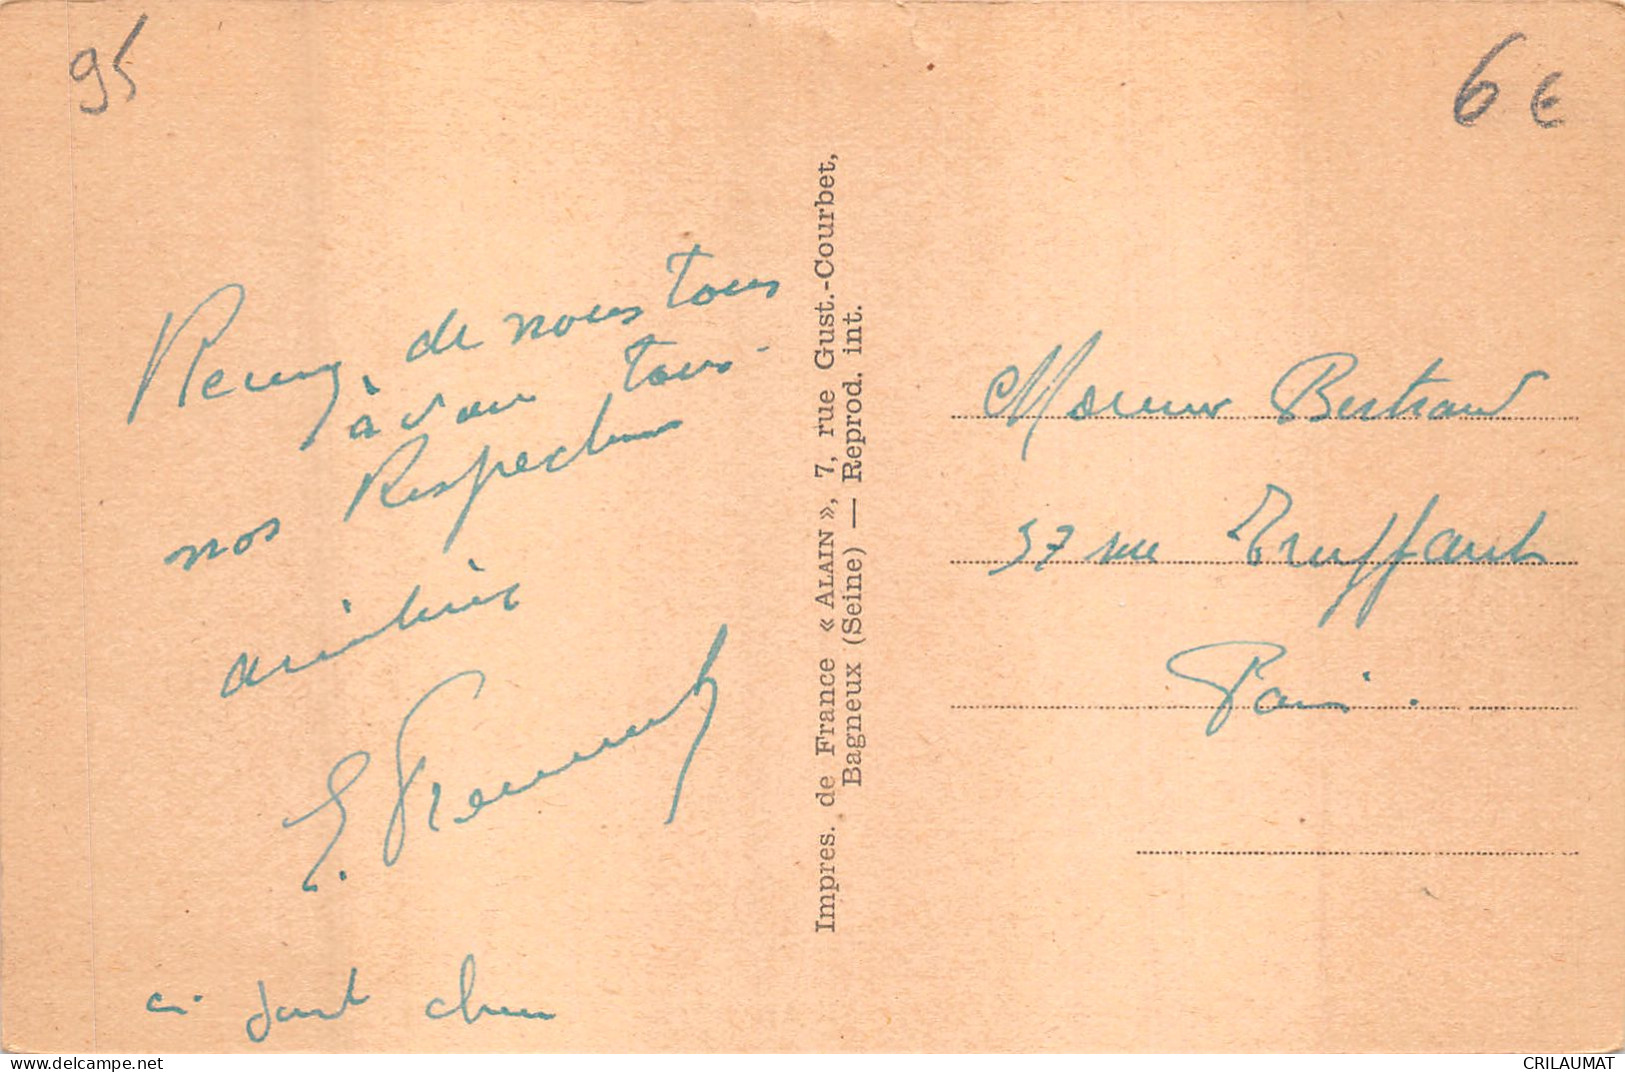 95
6 €
de nous tous
à vous tous
nos Respectueux
amitiés
ci-joint
Impres. de France « ALAIN », 7, rue Gust.-Courbet,
Bagneux (Seine) — Reprod. int.
Monsieur Bertrand
37 rue Truffaut
Paris.
delcampe.net
CRILAUMAT